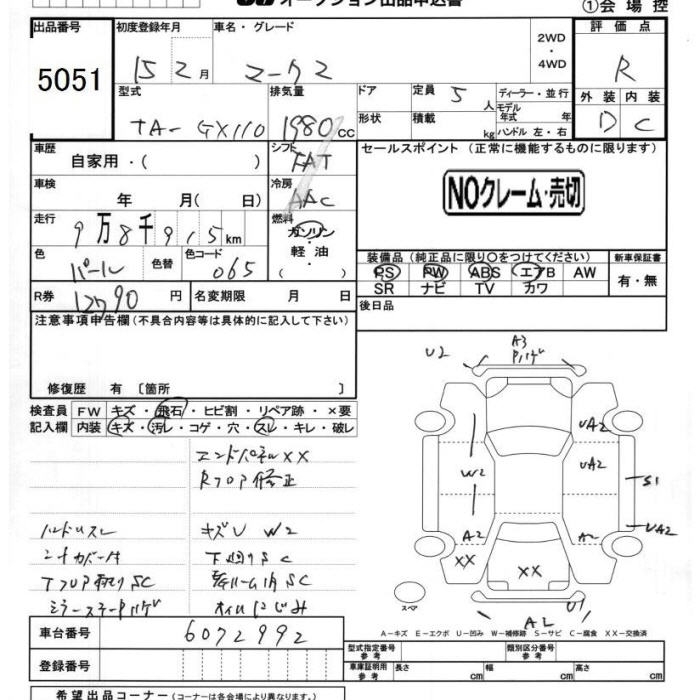 オークション出品申込書
①会場控
出品番号 5051
初度登録年月 15 2月
車名・グレード マーク2
2WD・4WD
評価点 R
外装 D 内装 C
型式 TA-GX110
排気量 1980cc
ドア 形状
定員 5人
積載 kg
ディーラー・並行
モデル年式 年
ハンドル 左・右
車歴 自家用・( )
シフト FAT
セールスポイント (正常に機能するものに限ります)
NOクレーム・売切
車検 年 月( 日)
冷房 AAC
走行 9万8千915km
燃料 ガソリン・軽油・( )
色 パール 色替 色コード 065
装備品 (純正品に限り○をつけてください)
PS PW ABS エアB AW
SR ナビ TV カワ
新車保証書 有・無
R券 12790円
名変期限 月 日
後日品
注意事項申告欄 (不具合内容等は具体的に記入して下さい)
修復歴 有 〔箇所 〕
検査員記入欄
FW キズ・飛石・ヒビ割・リペア跡・×要
内装 キズ・汚レ・コゲ・穴・スレ・キレ・破レ
エンドパネルXX
Rフロア修正
ハンドルスレ
キズU W2
シートカバー付
下廻りSC
TフロアサビSC
ミラーステーハゲ
オイルにじみ
U2
A3
ハゲ
UA2
UA2
W2
S1
UA2
A2
A2
XX
XX
スペア
U1
A2
A-キズ E-エクボ U-凹み W-補修跡 S-サビ C-腐食 XX-交換済
車台番号 6072992
登録番号
型式指定番号 参考
類別区分番号 参考
車庫証明用 参考 長さ cm 幅 cm 高さ cm
希望出品コーナー (コーナーは各会場により異なります。)